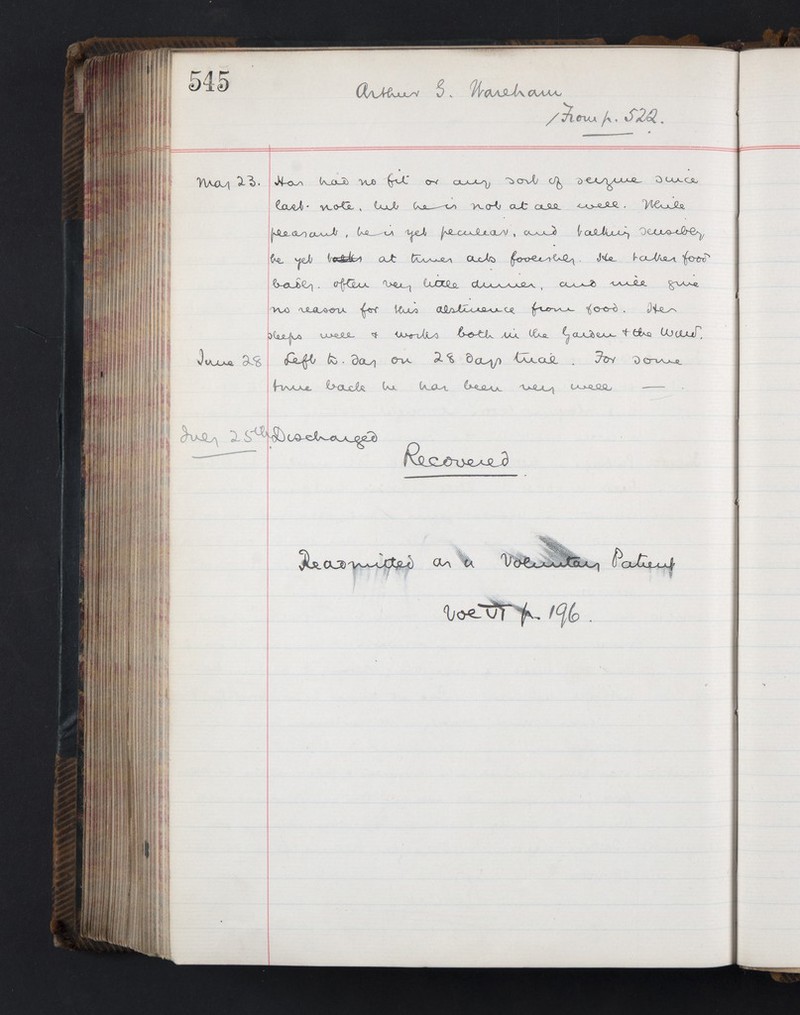 545
Arthur G. Wareham
/From p. 522.
May 23. Has had no fit or any sort of seizure since
last note, but he is not at all well. While
pleasant, he is yet peculiar, and talking sensibly
he yet at times acts foolishly. He takes food
badly, often very little dinner, and will give
no reason for this abstinence from food. He
sleeps well & works both in the Garden & the Ward.
June 28 Left to-day on 28 days trial. For some
time back he has been very well —.
July 25th Discharged
Recovered
Readmitted as a Voluntary Patient
Vol VI p. 196.